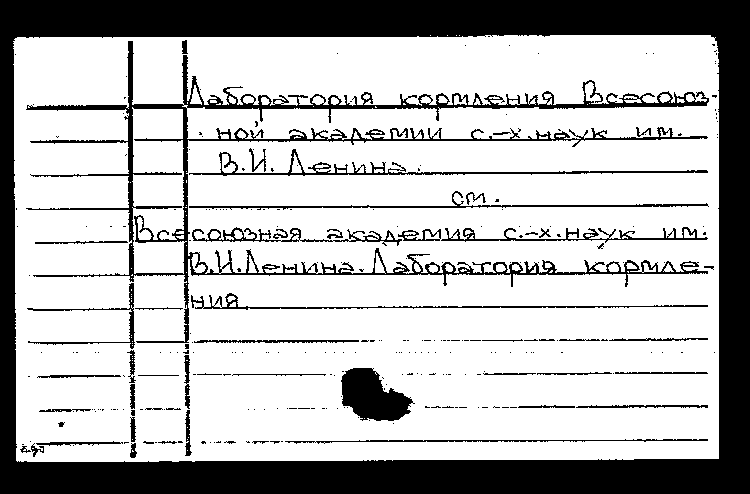 Лаборатория кормления Всесоюз-
ной академии с.-х.наук им.
В.И. Ленина.
см.
Всесоюзная академия с.-х.наук им.
В.И.Ленина. Лаборатория кормле-
ния.